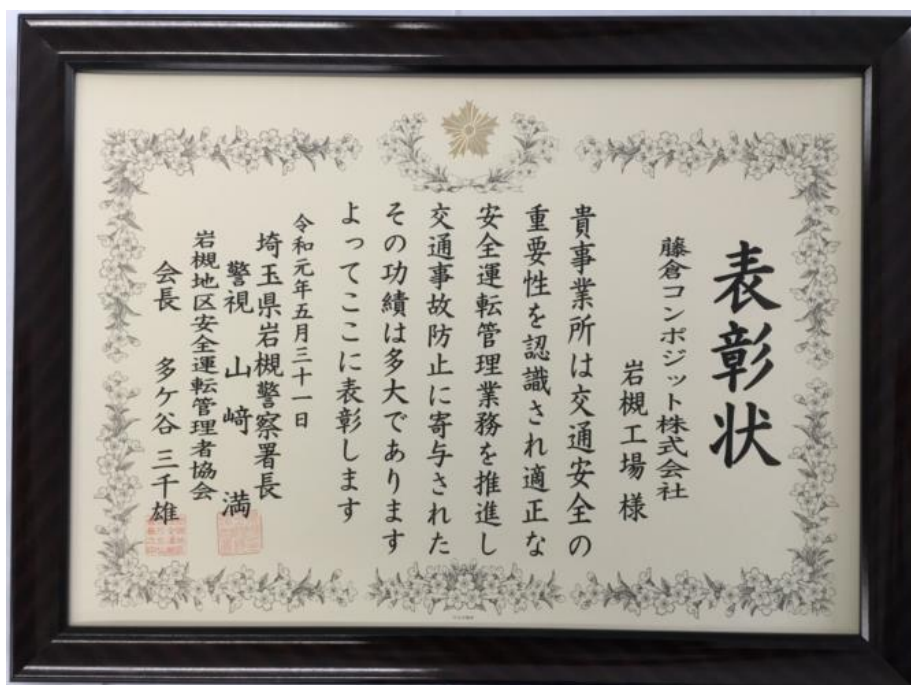 表彰状
藤倉コンポジット株式会社
岩槻工場様
貴事業所は交通安全の
重要性を認識され適正な
安全運転管理業務を推進し
交通事故防止に寄与された
その功績は多大であります
よってここに表彰します
令和元年五月三十一日
埼玉県岩槻警察署長
警視 山﨑 満
岩槻地区安全運転管理者協会
会長 多ケ谷 三千雄